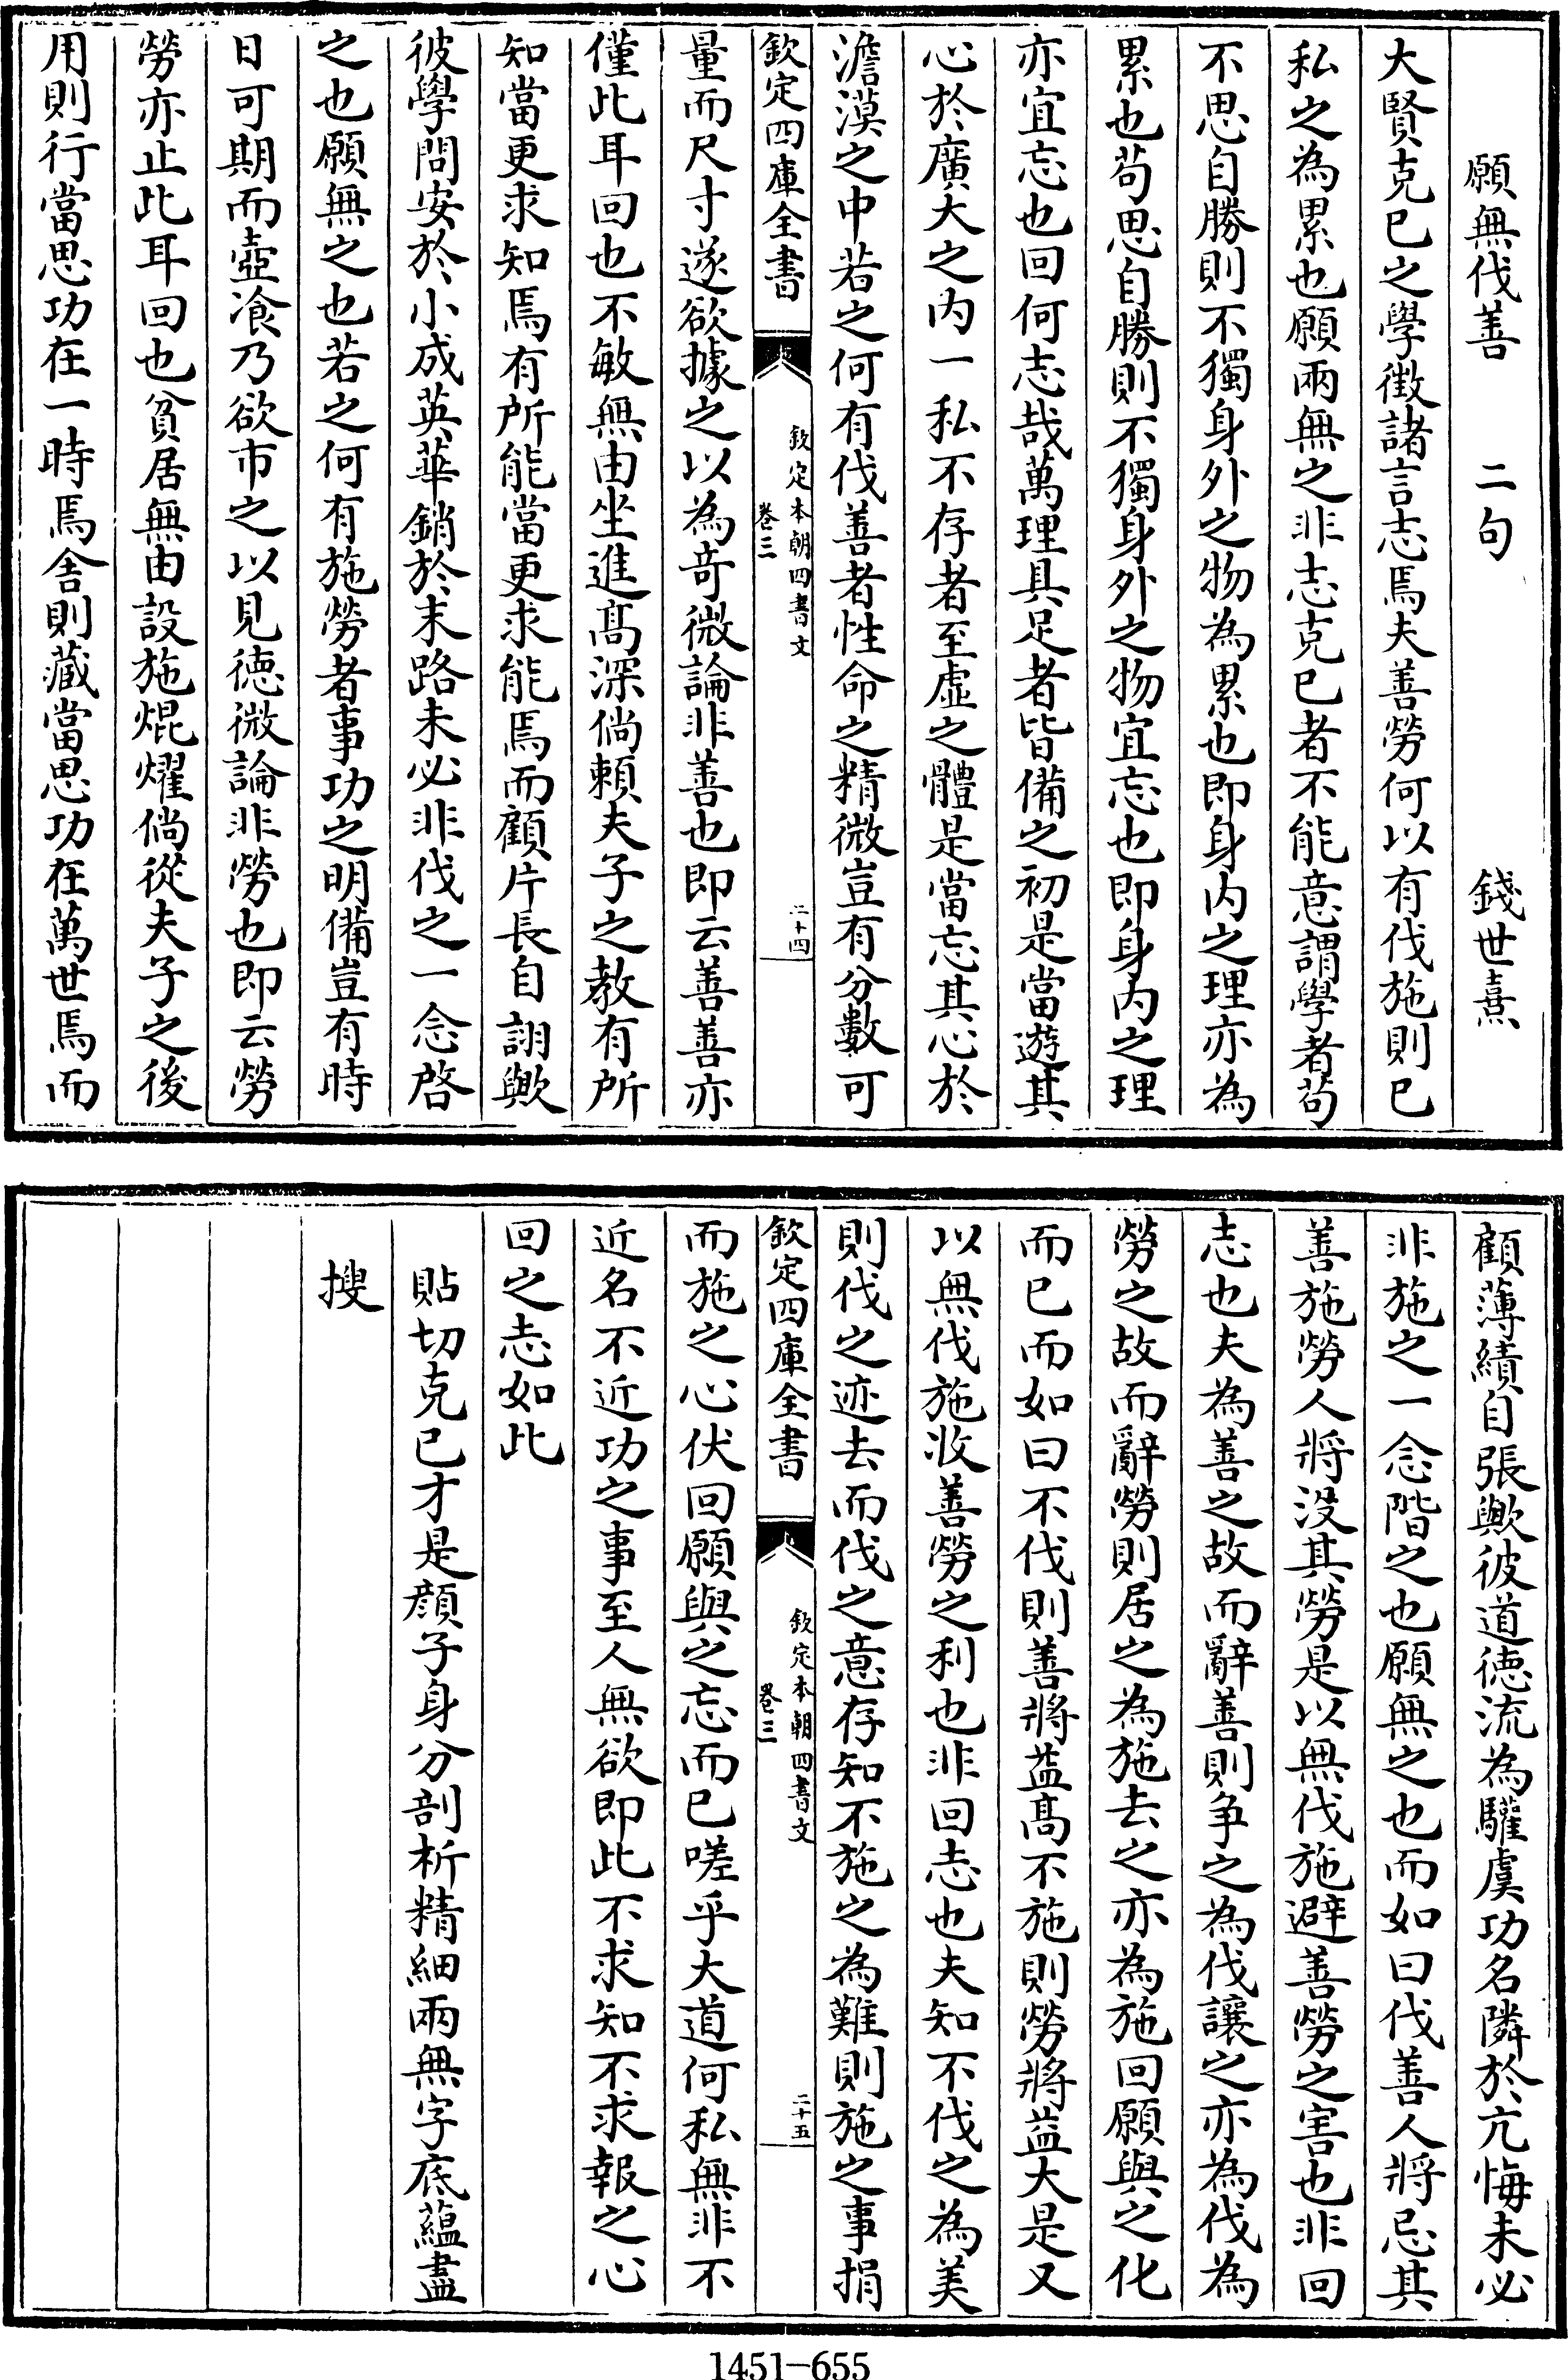 願無伐善　二句　錢世熹
大賢克己之學徴諸言志焉夫善勞何以有伐施則己
私之為累也願兩無之非志克己者不能意謂學者茍
不思自勝則不獨身外之物為累也即身内之理亦為
累也茍思自勝則不獨身外之物宜忘也即身内之理
亦宜忘也回何志哉萬理具足者皆備之初是當遊其
心於廣大之内一私不存者至虚之體是當忘其心於
澹漠之中若之何有伐善者性命之精微豈有分數可
欽定四庫全書
欽定本朝四書文
卷三
二十四
量而尺寸遂欲據之以為竒微論非善也即云善善亦
僅此耳回也不敏無由坐進髙深倘頼夫子之教有所
知當更求知焉有所能當更求能焉而顧片長自詡歟
彼學問安於小成英華銷於末路未必非伐之一念啓
之也願無之也若之何有施勞者事功之明備豈有時
日可期而壺飡乃欲市之以見徳微論非勞也即云勞
勞亦止此耳回也貧居無由設施焜燿倘從夫子之後
用則行當思功在一時焉舍則藏當思功在萬世焉而
顧薄績自張歟彼道徳流為驩虞功名隣於亢悔未必
非施之一念階之也願無之也而如曰伐善人將忌其
善施勞人將沒其勞是以無伐施避善勞之害也非回
志也夫為善之故而辭善則争之為伐讓之亦為伐為
勞之故而辭勞則居之為施去之亦為施回願與之化
而已而如曰不伐則善將益髙不施則勞將益大是又
以無伐施收善勞之利也非回志也夫知不伐之為美
則伐之迹去而伐之意存知不施之為難則施之事捐
欽定四庫全書
欽定本朝四書文
卷三
二十五
而施之心伏回願與之忘而已嗟乎大道何私無非不
近名不近功之事至人無欲即此不求知不求報之心
回之志如此
貼切克己才是顔子身分剖析精細兩無字底藴盡
搜
1451-655